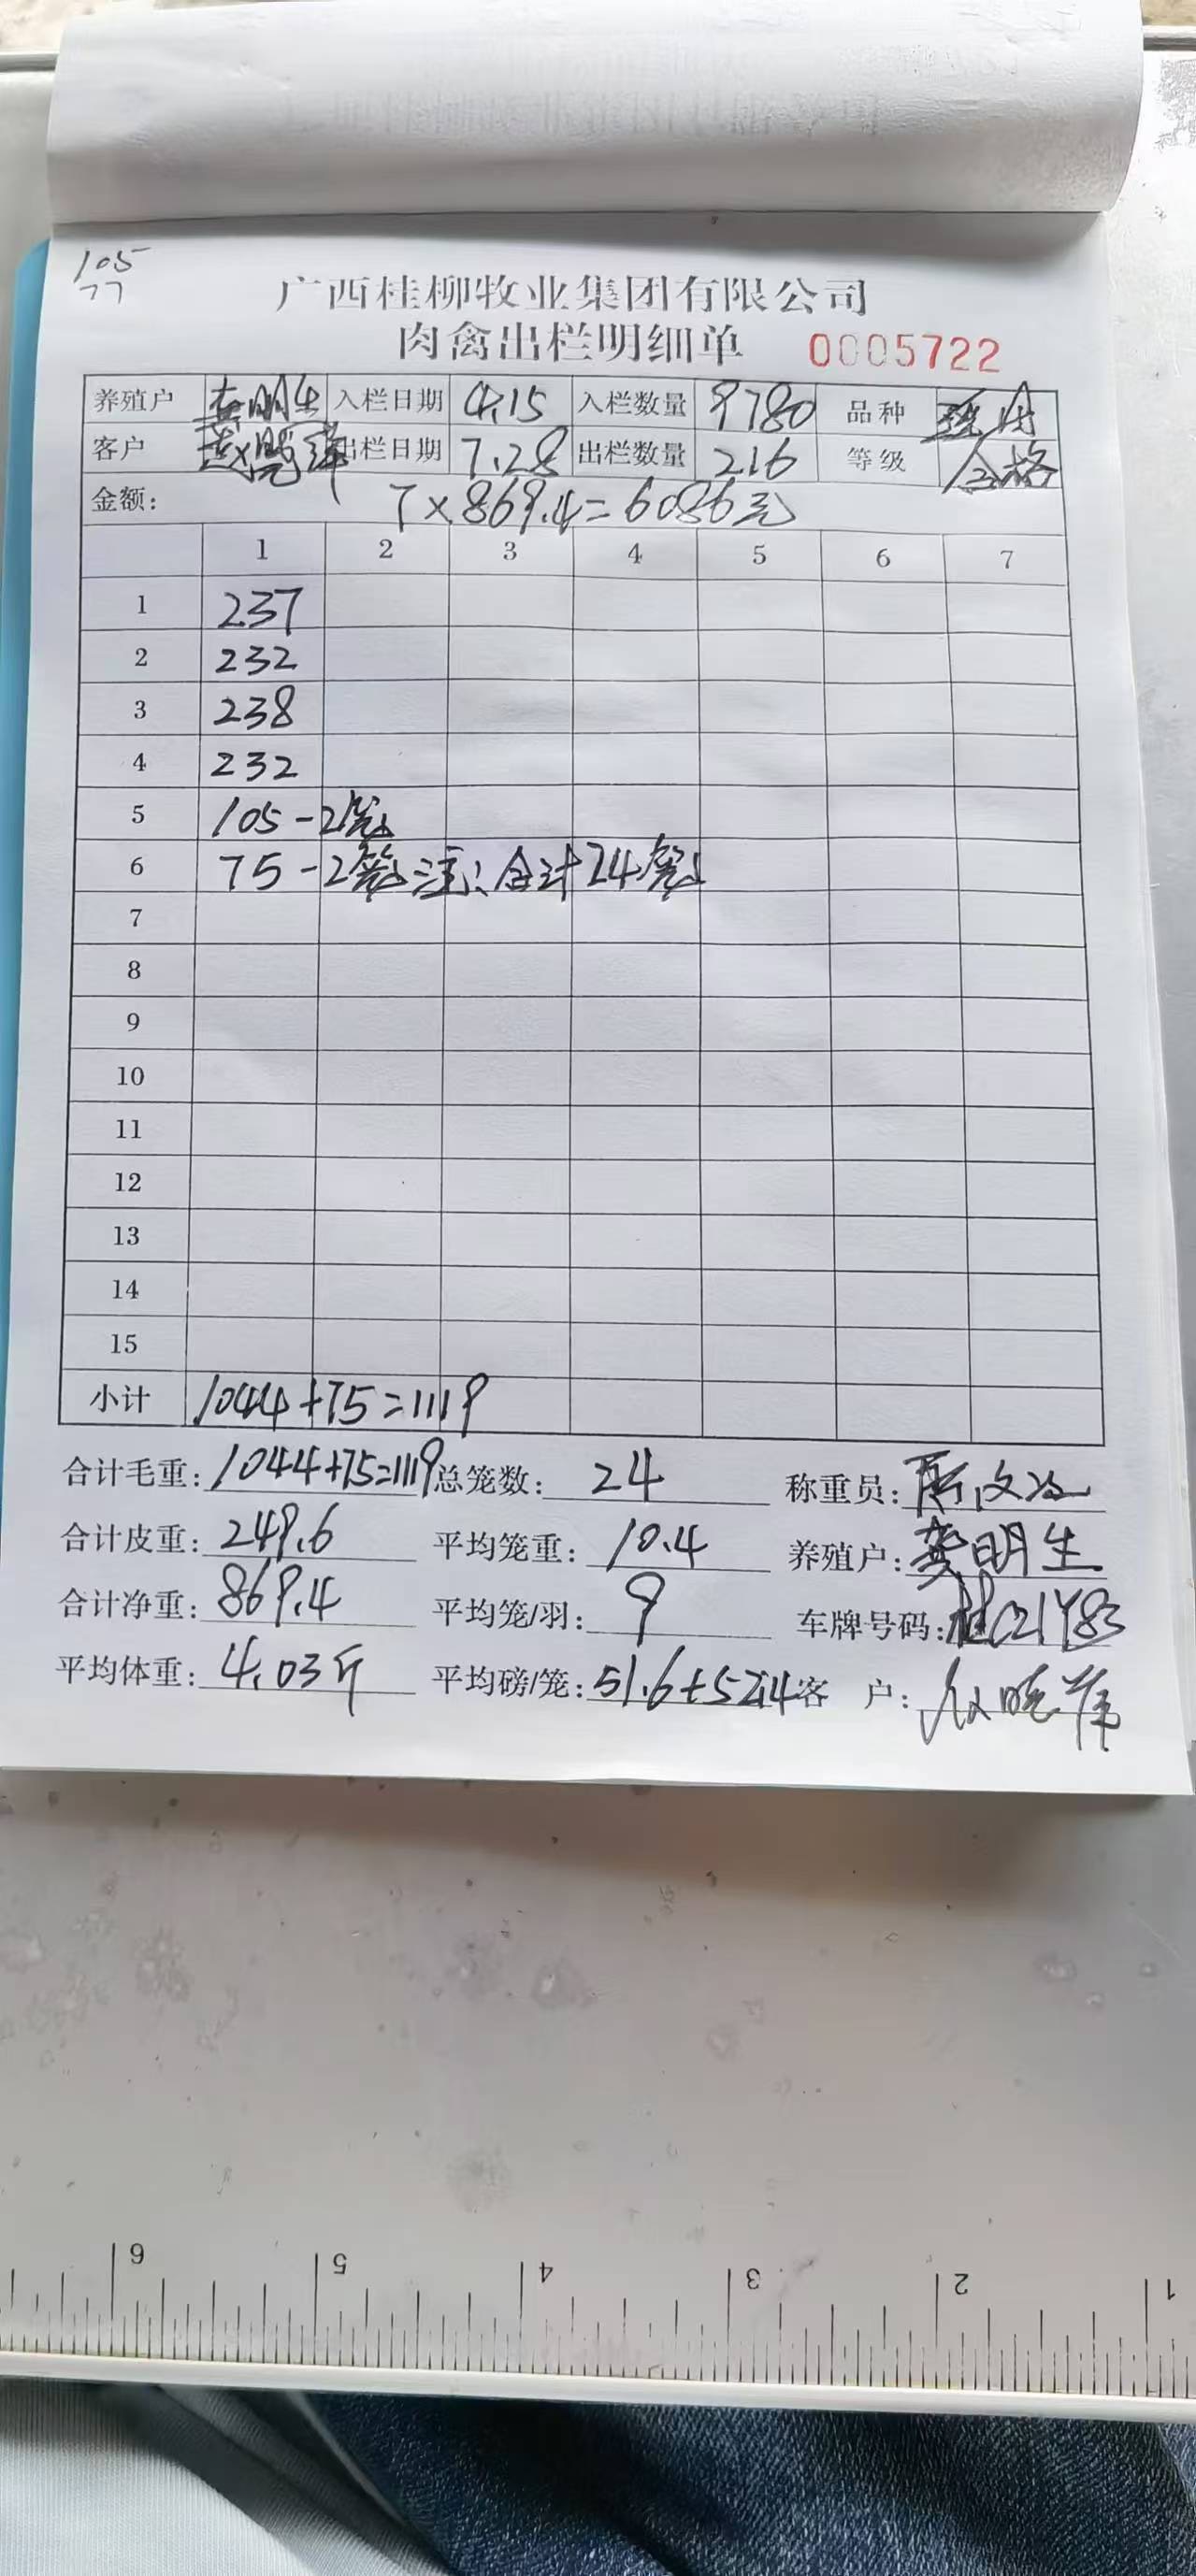 105
77
广西桂柳牧业集团有限公司
肉禽出栏明细单 0005722
养殖户 龚明生 入栏日期 4.15 入栏数量 9780 品种
客户 出栏日期 7.28 出栏数量 216 等级 合格
金额: 7×869.4=6086元
1 2 3 4 5 6 7
1 237
2 232
3 238
4 232
5 105-2笼
6 75-2笼 注:合计24笼
7
8
9
10
11
12
13
14
15
小计 1044+75=1119
合计毛重: 1044+75=1119 总笼数: 24 称重员:
合计皮重: 249.6 平均笼重: 10.4 养殖户: 龚明生
合计净重: 869.4 平均笼/羽: 9 车牌号码: 桂C21Y83
平均体重: 4.03斤 平均磅/笼: 51.6+52.4 客 户: